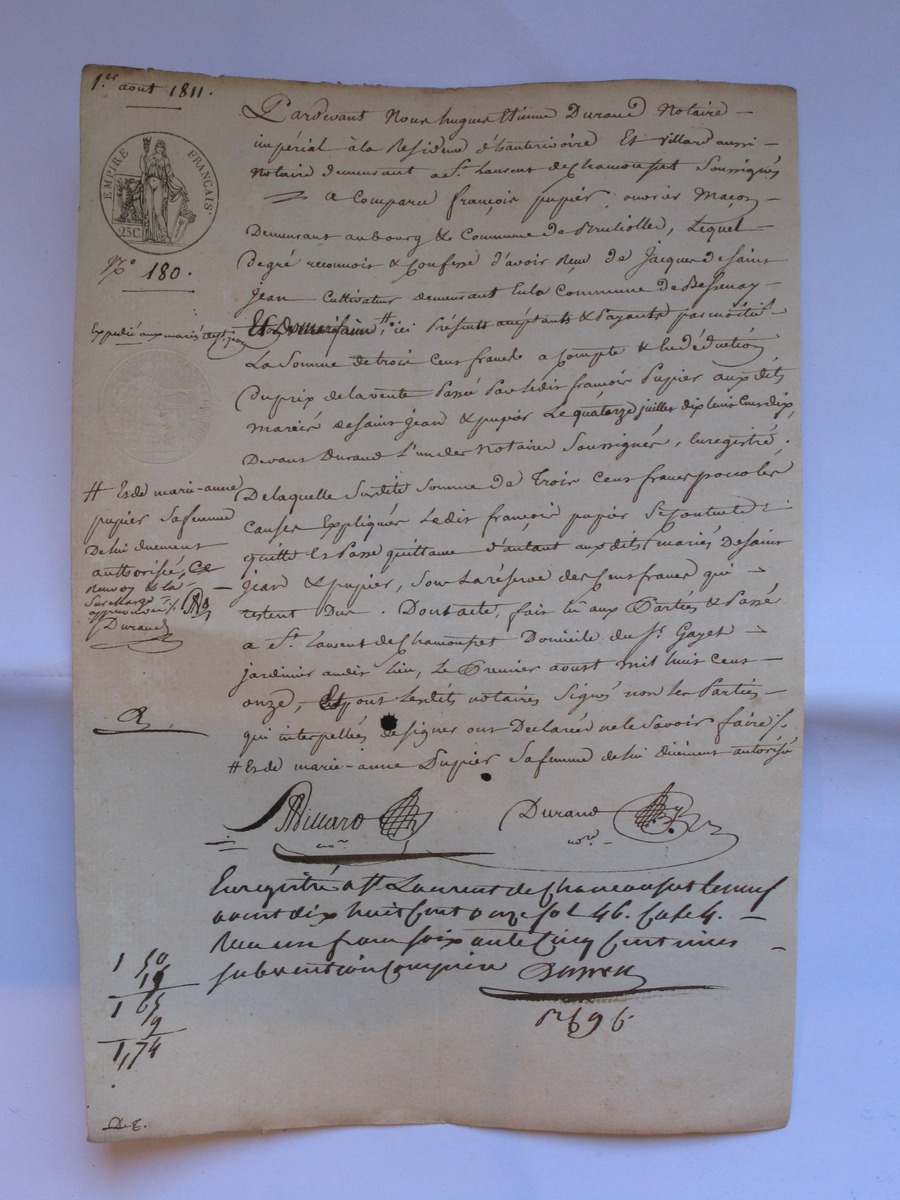 1.er aout 1811.
EMPIRE FRANÇAIS
25C
N.o 180.
Expedié aux mariés
Pardevant Nous hugues Etienne Durand Notaire
impérial à la Residence d'hauterivoire Et Villard aussi
Notaire demeurant a St. Laurent de Chamousset Soussignés
a Comparu françois pupier, ouvrier Maçon
Demeurant au bourg & Commune de Brulliolle, Lequel
De gré reconnoit & Confesse d'avoir Reçu de Jacques de Saint
Jean Cultivateur demeurant En la Commune de Bessenay
# ici Présents acceptants & Payants par moitié
La Somme de trois Cens francs a Compte & En déduction
Du prix de la vente Passé Par Ledit françois Pupier aux dits
mariés de Saint Jean & pupier Le quatorze juillet dix huit Cens dix,
Devant Durand L'un des Notaires Soussignés, Enregistré.
De laquelle Surdite Somme de Trois Cens francs pour les
Causes Expliquées Ledit françois pupier Se Contente
quitte Et Passe quittance d'autant aux dits mariés De Saint
Jean & pupier, Sous La réserve des Cens francs qui
restent Dur. Dont acte, fait lu aux Parties & Passé
a St. Laurent de Chamousset Domicile du Sr. Gayet
jardinier audit Lieu, Le Premier aoust mil huit Cens
onze, Et ont Lesdits notaires Signés non les Parties
qui interpellées de signer ont Déclarées ne le Savoir faire /.
# Et de marie-anne Pupier Sa femme de lui duement autorisé
# Et de marie-anne
pupier Sa femme
De lui duement
authorisée, Ce
Renvoi & la
Surcharge
approuvées /.
Durand
Villard
Durand
no.re
Enregistré a St. Laurent de Chamousset le neuf
aout dix huit Cent onze fol 46. Case 4.
Reçu un franc soixante Cinq Centimes
subvention Comprise
1 50
15
1 65
9
1,74